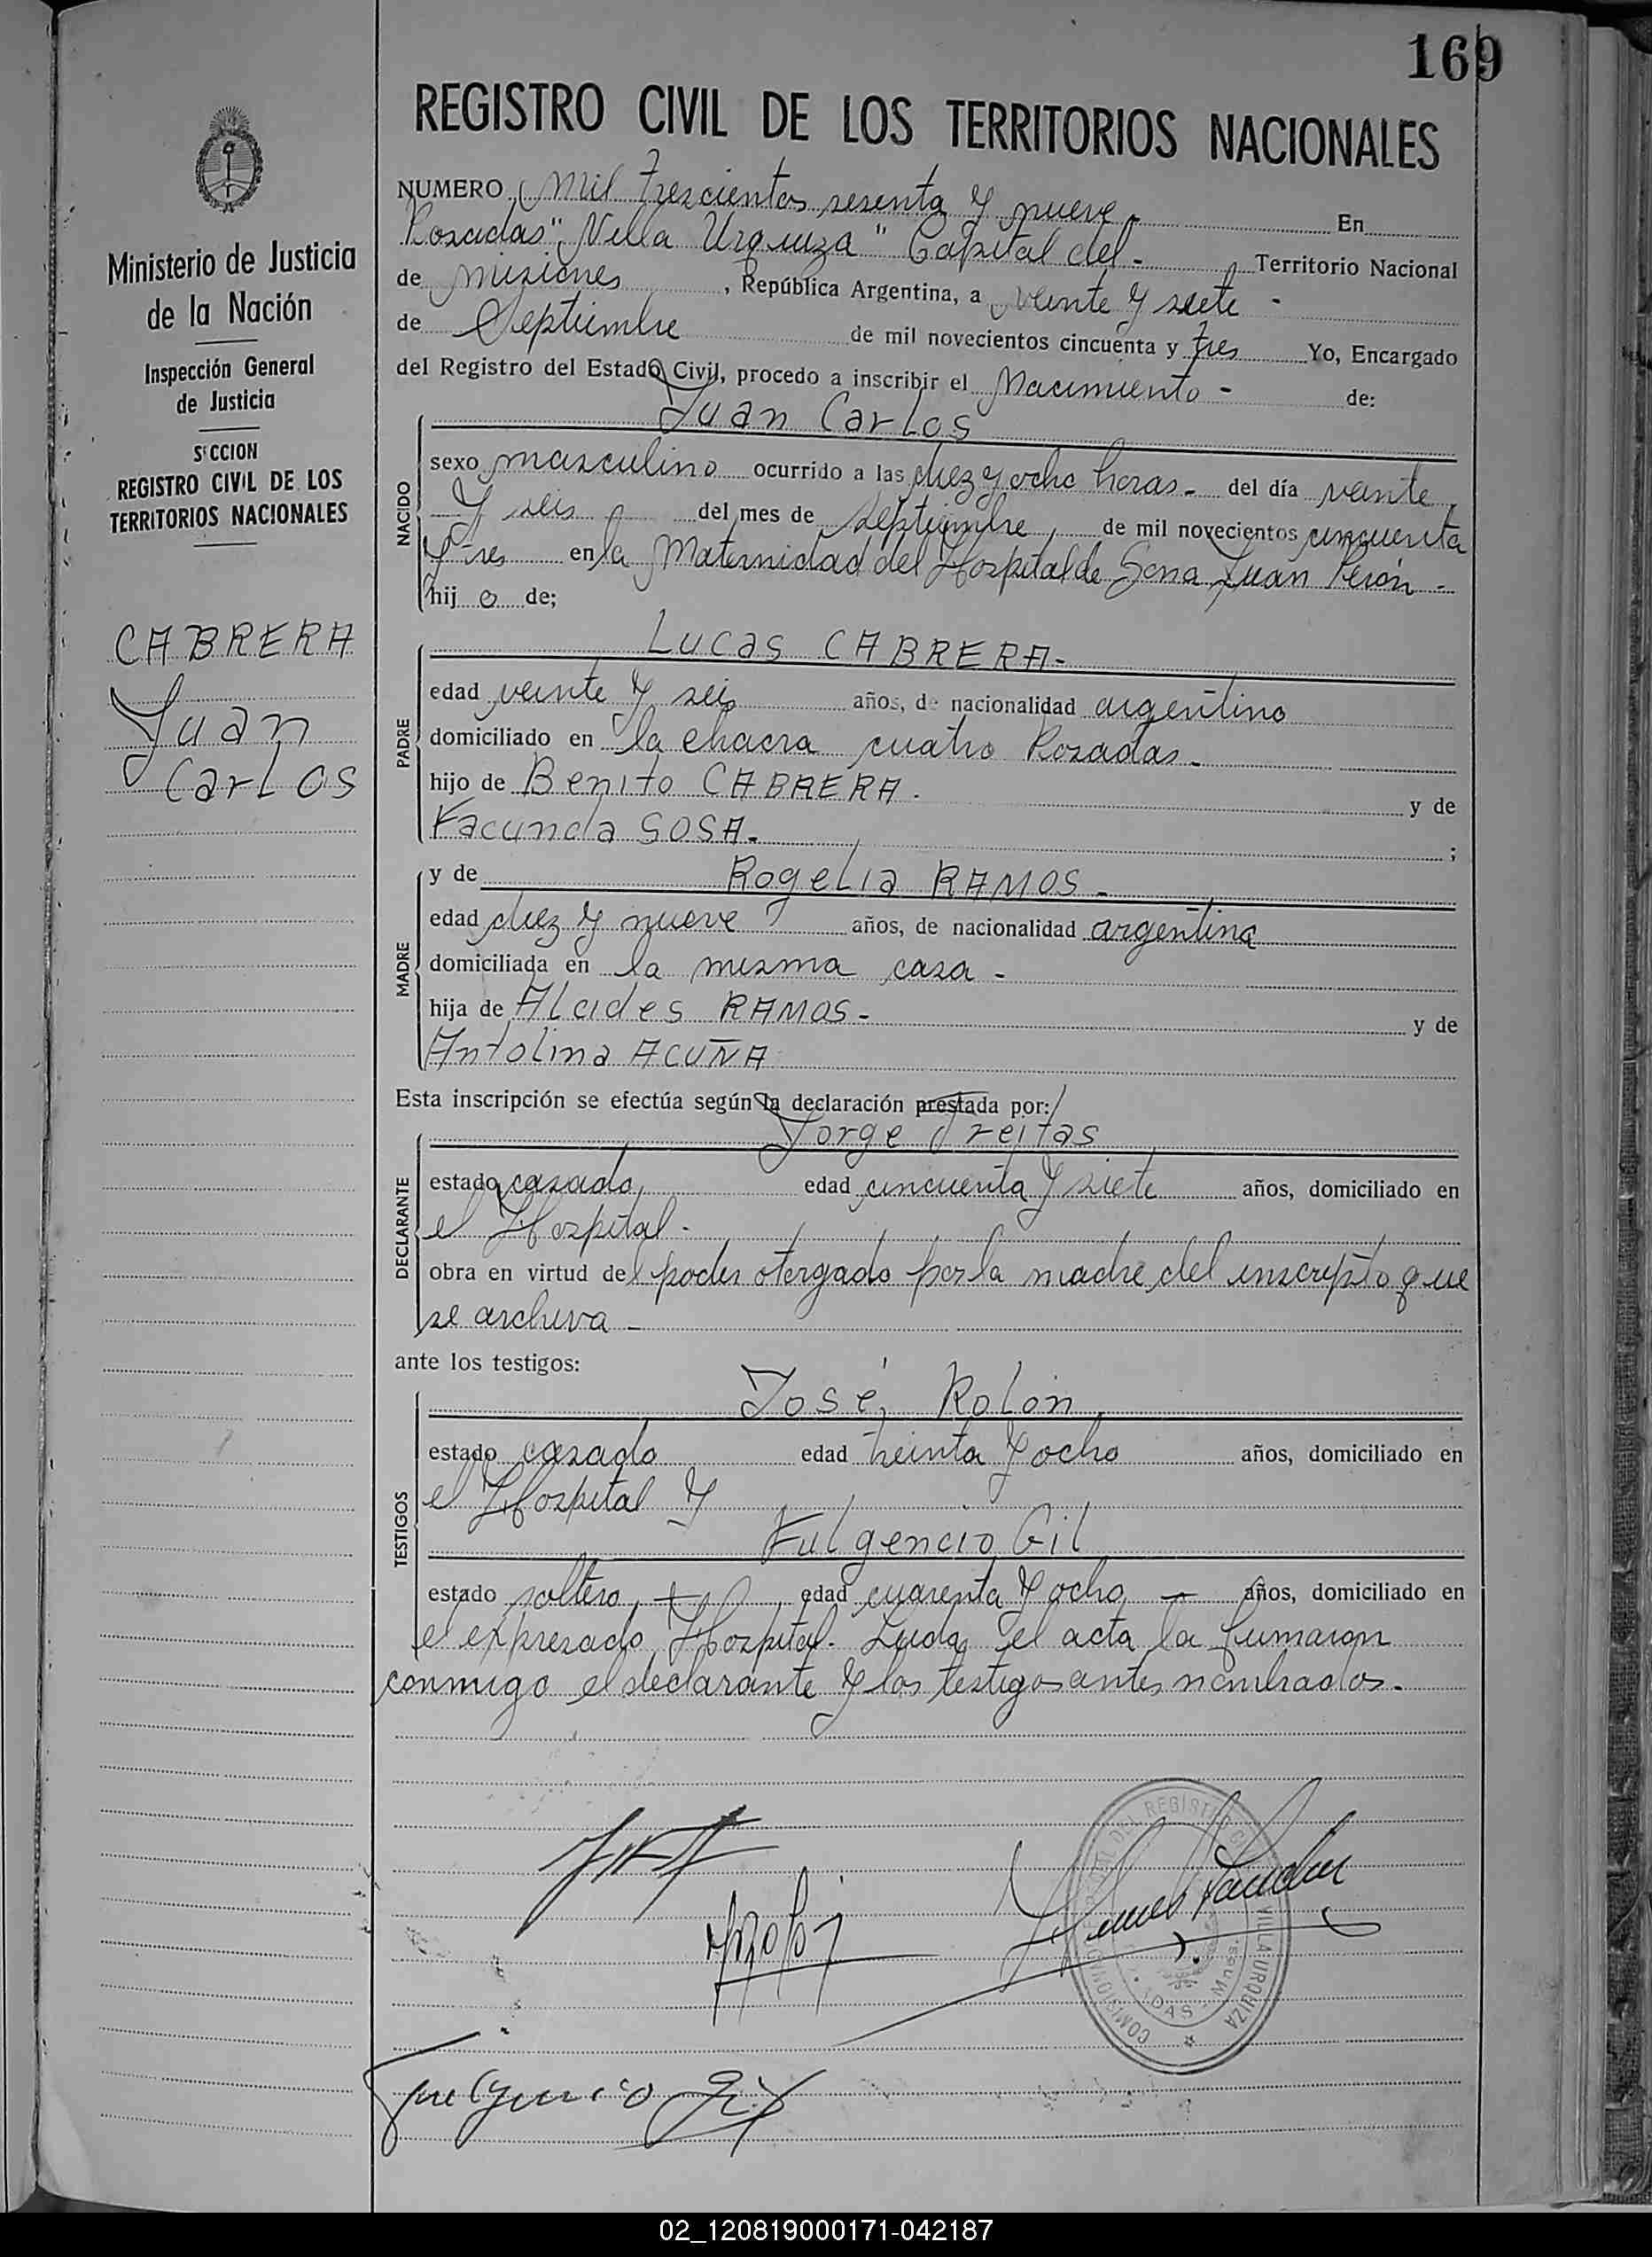 169
REGISTRO CIVIL DE LOS TERRITORIOS NACIONALES
Ministerio de Justicia
de la Nación
Inspección General
de Justicia
SECCION
REGISTRO CIVIL DE LOS
TERRITORIOS NACIONALES
CABRERA
Juan
Carlos
NUMERO Mil trescientos sesenta y nueve.- En
Posadas "Villa Urquiza" Capital del- Territorio Nacional
de Misiones, República Argentina, a veinte y siete -
de Septiembre de mil novecientos cincuenta y tres Yo, Encargado
del Registro del Estado Civil, procedo a inscribir el Nacimiento - de:
NACIDO
Juan Carlos
sexo masculino ocurrido a las diez y ocho horas- del día veinte
y seis del mes de Septiembre de mil novecientos cincuenta
y tres en la Maternidad del Hospital de Gena Juan Perón -
hijo de;
PADRE
Lucas CABRERA-
edad veinte y seis años, de nacionalidad argentino
domiciliado en la chacra cuatro Posadas-
hijo de Benito CABRERA. y de
Facunda SOSA- ;
MADRE
y de Rogelia RAMOS-
edad diez y nueve años, de nacionalidad argentina
domiciliada en la misma casa-
hija de Alcides RAMOS- y de
Antolina ACUÑA
Esta inscripción se efectúa según la declaración prestada por:
DECLARANTE
Jorge Freitas
estado casado, edad cincuenta y siete años, domiciliado en
el Hospital-
obra en virtud del poder otorgado por la madre del inscripto que
se archiva-
ante los testigos:
TESTIGOS
José Rolón
estado casado edad treinta y ocho años, domiciliado en
el Hospital y
Fulgencio Gil
estado soltero, edad cuarenta y ocho - años, domiciliado en
el expresado Hospital- Leida el acta la firmaron
conmigo el declarante y los testigos antes nombrados.-
DEL REGISTRO
VILLA URQUIZA
COMISIONADO
Fulgencio Gil
02_120819000171-042187